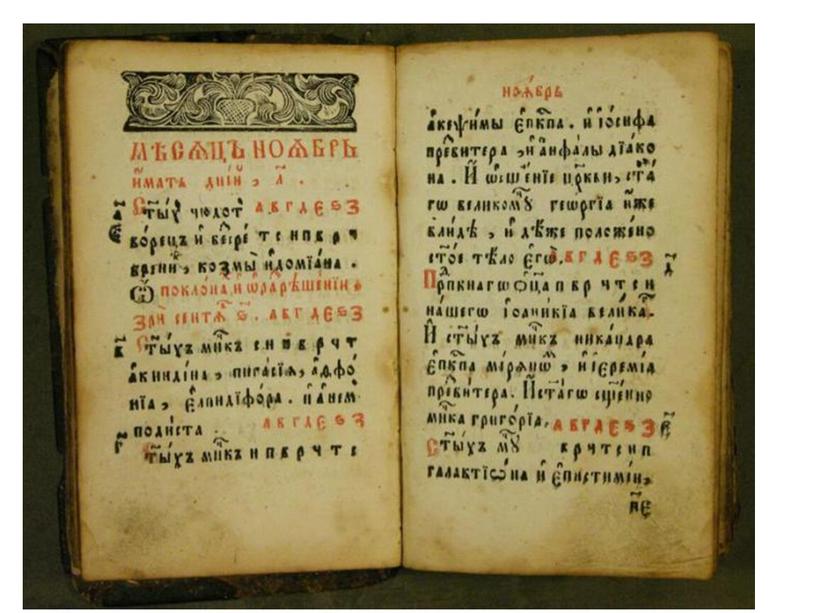 мѣсѧцъ ноѧбрь
и҆мать дні́й , л҃ .
а҃ С҃ты́хъ чюдот а в г д є ѕ з
во́рецъ и҆ бесре́ т с н п в р ч
брени́къ , козмы̀ и҆ домїа́на .
Ѡ҆ поклона́х , и҆ ѡ разрѣшенїи ,
зрѝ сентѧ҃ ѕ҃ . а в г д є ѕ з
в҃ С҃ты́хъ мч҃нкъ с н п в р ч т
а҆кинди́на , пига́сїѧ , а҆дфо́
нїа , є҆лпидїфо́ра . и҆ а҆нем
поди́ста . а в г д є ѕ з
г҃ С҃ты́хъ мч҃нкъ н п в р ч т с
ноѧ́брь
а҆кеѱи́мы є҆пк҃па . и҆ і҆о́сифа
пресви́тера , и҆ а҆нфа́лы дїа́ко
на . И҆ ѡ҆сщ҃е́нїе цр҃кви , ст҃а́
гѡ вели́комꙋ҃ гео́ргїа и҆́же
в ли́дѣ , и҆дѣ́же положе́но
ст҃о́е тѣ́ло є҆гѡ̀ . а в г д є ѕ з
д҃ Прпⷣбнагѡ ѻ҆ц҃а п в р ч т с н
на́шегѡ і҆оани́кїа вели́каⷢ .
И҆ ст҃ы́хъ мч҃нкъ ника́ндра
є҆пк҃па ми́рѧнѡⷨ , и҆ і҆ереміа
пресви́тера . И҆ ст҃а́гѡ сщ҃е́нно
мч҃нка григо́рїа , а в г д є ѕ з
є҃ С҃ты́хъ мч҃ в р ч т с н п
галактїѡ́на и҆ є҆писти́мїи ,